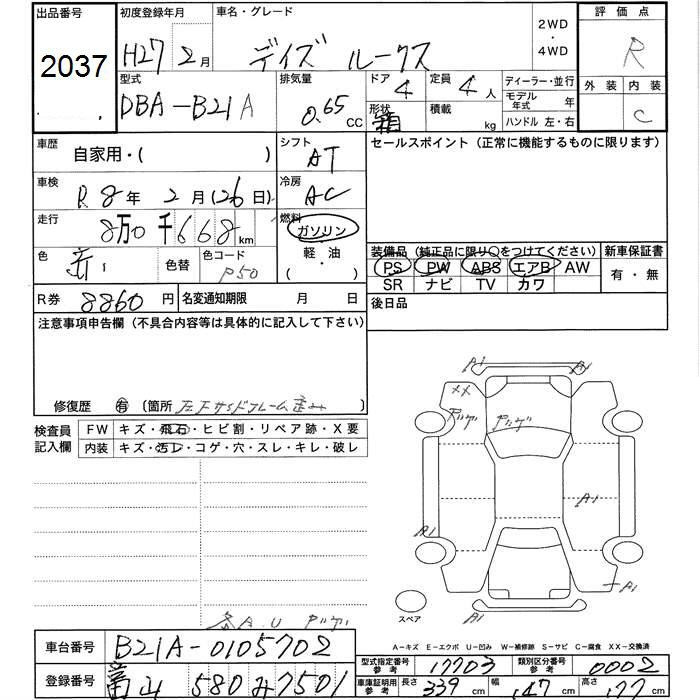 出品番号 初度登録年月 車名・グレード 2WD・4WD 評価点
2037 H27 2月 デイズ ルークス R
型式 排気量 ドア 定員 ディーラー・並行 外装 内装
DBA-B21A 0.65 CC 4 4人 モデル年式 年 C
形状 箱 積載 kg ハンドル 左・右
車歴 自家用・( ) シフト AT セールスポイント (正常に機能するものに限ります)
車検 R8年 2月(26日) 冷房 AC
走行 8万0千668km 燃料 ガソリン
軽・油
( )
色 色替 色コード P50
装備品 (純正品に限り○をつけてください) 新車保証書
PS PW ABS エアB AW 有・無
SR ナビ TV カワ
R券 8860円 名変通知期限 月 日 後日品
注意事項申告欄 (不具合内容等は具体的に記入して下さい)
修復歴 有 〔箇所 左Fサイドフレーム歪み 〕
検査員記入欄 FW キズ・飛石・ヒビ割・リペア跡・X要
内装 キズ・汚レ・コゲ・穴・スレ・キレ・破レ
A1 A1
XX
A1
A1
A1
A1
スペア
各A.U
A-キズ E-エクボ U-凹み W-補修跡 S-サビ C-腐食 XX-交換済
車台番号 B21A-0105702
型式指定番号 参考 17703 類別区分番号 参考 0002
登録番号 富山 580 み 7501
車庫証明用 参考 長さ 339cm 幅 147cm 高さ 177cm